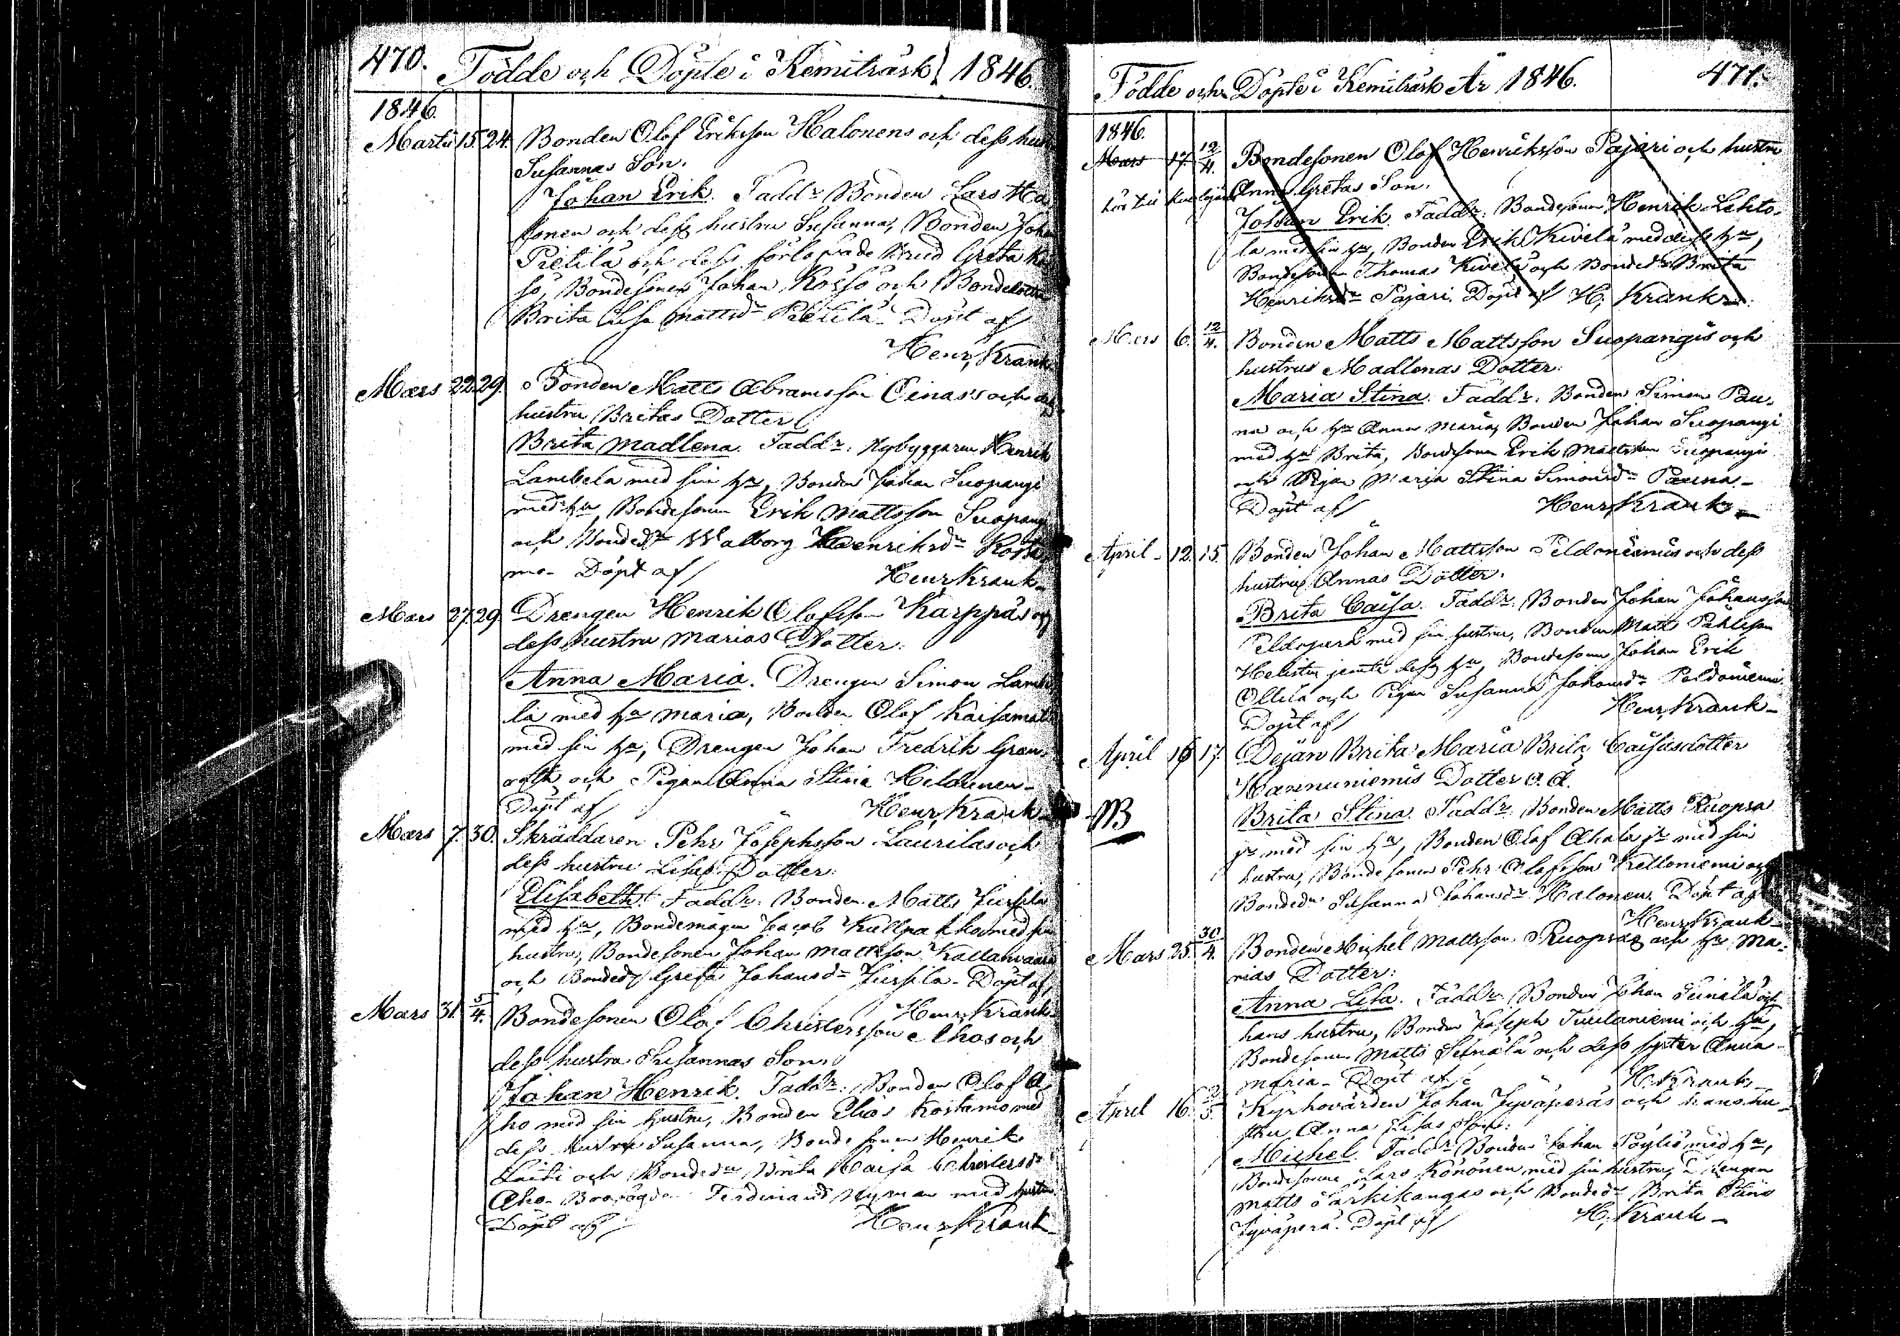 470. Födde och Döpte i Kemiträsk 1846.
1846.
Martii 15. 24. Bonden Olof Eriksson Halonens och dess hus
Susannas Son.
Johan Erik. Faddr Bonden Lars Ha
lonen och dess hustru Susanna, Bonden Joha
Pietilä och dess förlofvade Brud Greta
so, Bondesonen Johan Kosso och Bonde
Brita Lisa Mattsdr Pietilä. Döpt af
Henr. Krank
Mars 22. 29. Bonden Matts Abramsson Oinas's och
hustru Britas Dotter
Brita Madlena. Faddr: Nybyggaren Henrik
Lambela med sin hu, Bonden Johan Suopangi
med hu, Bondesonen Erik Mattsson Suopang
och Bondedr Walborg Henriksdr Kosta
mo. Döpt af Henr. Krank.
Mars 27. 29. Drengen Henrik Olofsson Karppas og
dess hustru Marias Dotter.
Anna Maria. Drengen Simon Lambe
la med hu Maria, Bonden Olof Kaisamatt
med sin hu, Drengen Johan Fredrik Gran
och Pigan Anna Stina Hildunen
Döpt af Henr. Krank
Mars 7. 30. Skräddaren Pehr Josephsson Laurilas och
dess hustru Lisas Dotter.
Elisabeth. Faddr. Bonden Matts
med hu, Bondemågen Jacob med sin
hustru, Bondesonen Johan Mattsson Kallanvaara
och Bondedr Greta Johansdr Döpt af
Henr. Krank
Mars 31. 5/4. Bondesonen Olof Christersson Ahos och
dess hustru Susannas Son.
Johan Henrik. Faddr. Bonden Olof A
ho med sin hustru, Bonden Elias Kostamo med
dess hustru Susanna, Bondesonen Henrik
och Bondedr Brita Kaisa Christersdr
Aho. Ferdinand Nyman med hustru
Döpt af Henr. Krank
Födde och Döpte i Kemiträsk År 1846. 471.
1846.
Mars 17. 12/4. Bondesonen Olof Henriksson Pajari och hustru
Anna Gretas Son.
Johan Erik. Faddr. Bondesonen Henrik Lehto-
la med sin hu, Bonden Erik Kivelä med dess hu,
Bondesonen Thomas Kivelä och Bondedr Brita
Henriksdr Pajari. Döpt af H. Krank
Mars 6. 12/4. Bonden Matts Mattsson Suopangis och
hustrus Madlenas Dotter.
Maria Stina. Faddr. Bonden Simon Pau-
na och hu Anna Maria, Bonden Johan Suopangi
med hu Brita, Bondesonen Erik Mattsson Suopangi
och Pigan Maria Stina Simonsdr Pauna.
Döpt af Henr. Krank
April 12. 15. Bonden Johan Mattsson Peldoniemis och dess
hustrus Annas Dotter.
Brita Caisa. Faddr. Bonden Johan Johansson
Peldoperä med sin hustru, Bonden Matts Påhlsson
jemte dess hu, Bondesonen Johan Erik
Ollila och Pigan Susanna Johansdr Peldoniemi.
Döpt af Henr. Krank
April 16 17. Dejan Brita Maria Brita Caisasdotter
Hannuniemis Dotter o. ä.
NB
Brita Stina. Faddr. Bonden Matts Ruopsa
jr med sin hu, Bonden Olof Akala jr med sin
hustru, Bondesonen Pehr Olofsson Kelloniemi och
Bondedr Susanna Johansdr Halonen. Döpt af
Henr. Krank
Mars 25. 30/4. Bonden Michel Mattsson Ruopsas och hu Ma-
rias Dotter.
Anna Lisa. Faddr. Bonden Johan Seinälä och
hans hustru, Bonden Joseph Tuulaniemi och hu,
Bondesonen Matts Seinälä och dess syster Anna
Maria. Döpt af H. Krank
April 16. 3/5. Kyrkovärden Johan Jyväperäs och hans hu-
stru Anna Lisas Son.
Michel. Faddr Bonden Johan Pöyliö med hu,
Bondesonen Lars Könönen med sin hustru, Drengen
Matts Särkikangas och Bondedr Brita Stina
Jyväperä. Döpt af H. Krank